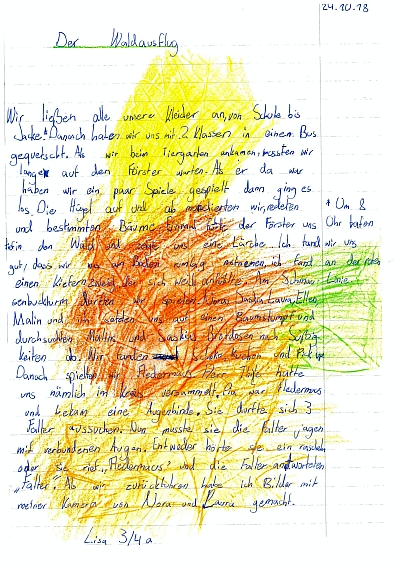 24.10.18
Der Waldausflug
Wir ließen alle unsere Kleider an, von Schule bis
Jacke. * Danach haben wir uns mit 2 Klassen in einen Bus
gequetscht. Als wir beim Tiergarten ankamen, mussten wir
lange auf den Förster warten. Als er da war
haben wir ein paar Spiele gespielt dann ging es
los. Die Hügel auf und ab marschierten wir, redeten
* Um 8
und bestimmten Bäume. Einmal der Förster uns
Uhr traten
in den Wald und zeigte uns eine Lärche. Ich fand
wir uns
gut, dass wir uns am Boden ich fand
an der
einen Kiefernzweig der sich weich anfühlte. Am
durften wir spielen. Nora, Saskia, Laura, Ellen,
Malin und ich setzten uns auf einen Baumstumpf und
durchsuchten Malins und Saskias Brotdosen nach Süßig
keiten ab. Wir fanden Kuchen und
Danach spielten wir Fledermaus. Herr hatte
uns nämlich im Kreis versammelt. war Fledermaus
und bekam eine Augenbinde. Sie durfte sich 3
Falter aussuchen. Nun musste sie die Falter jagen
mit verbundenen Augen. Entweder hörte sie ein rascheln
oder sie rief „Fledermaus" und die Falter antworteten
„Falter". Als wir zurückfuhren habe ich Bilder mit
meiner Kamera von Nora und Laura gemacht.
Lisa 3/4a